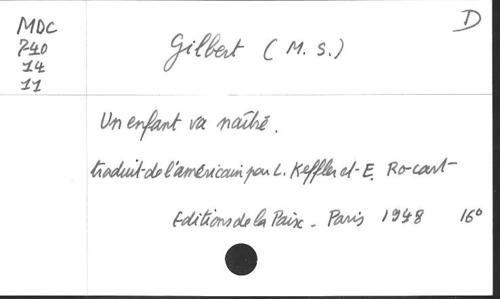 MDC
740
14
11
Gilbert (M. S.)
D
Un enfant va naître.
traduit de l'américain par L. Keffler et E. Rocart
Editions de la Paix - Paris 1948 16°